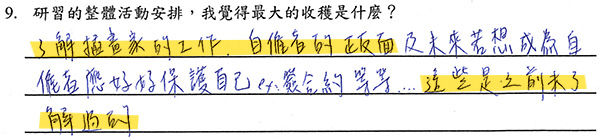 9. 研習的整體活動安排，我覺得最大的收穫是什麼？
了解插畫家的工作，自僱者的正反面及未來若想成為自
僱者應好好保護自己 ex:簽合約 等等...這些是之前未了
解過的